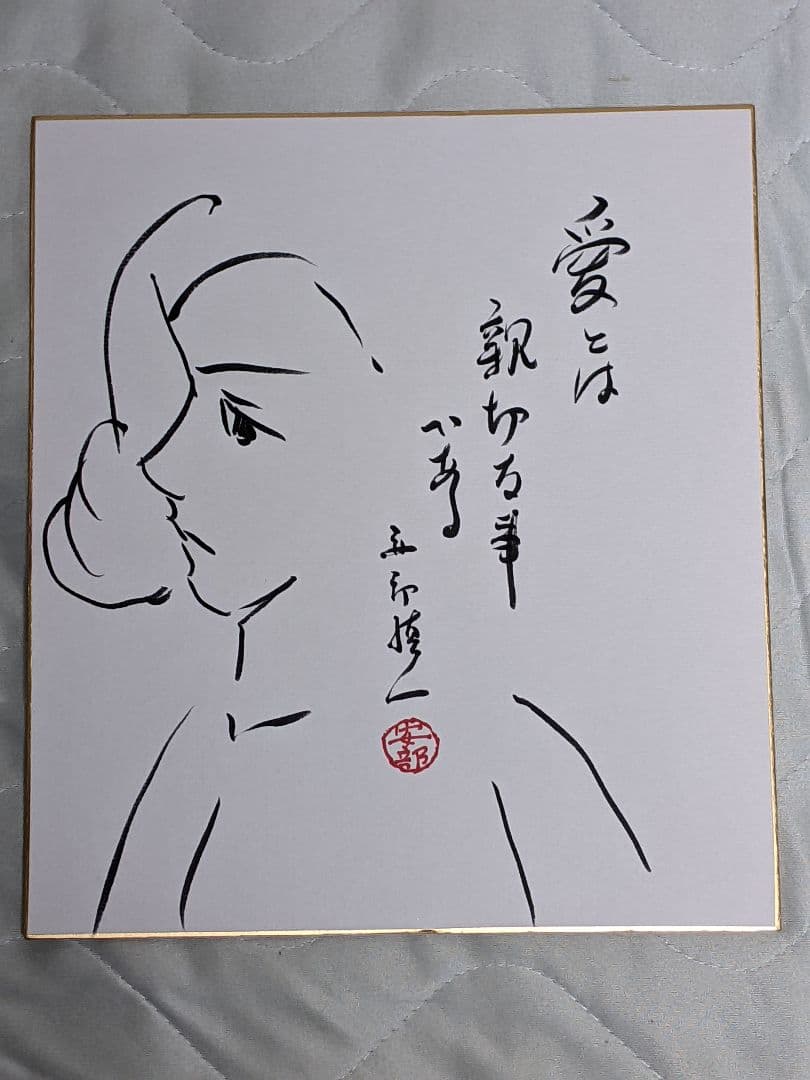 愛とは
親切な事
である
安部慎一
安部